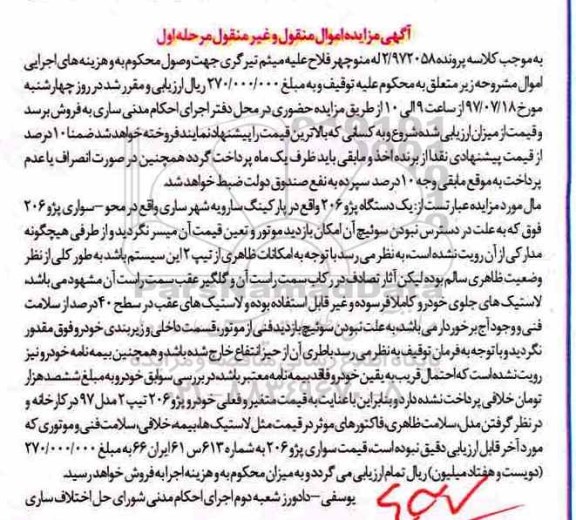 آگهی مزایده اموال منقول و غیر منقول مرحله اول
به موجب کلاسه پرونده ۲/۹۷۲۰۵۸ له منوچهر فلاح علیه میثم تیرگری جهت وصول محکوم به و هزینه های اجرایی
اموال مشروحه زیر متعلق به محکوم علیه توقیف و به مبلغ ۲۷۰/۰۰۰/۰۰۰ ریال ارزیابی و مقرر شد در روز چهارشنبه
مورخ ۹۷/۰۷/۱۸ از ساعت ۹ الی ۱۰ از طریق مزایده حضوری در محل دفتر اجرای احکام مدنی ساری به فروش برسد
و قیمت از میزان ارزیابی شده شروع و به کسانی که بالاترین قیمت را پیشنهاد نمایند فروخته خواهد شد ضمنا ۱۰ درصد
از قیمت پیشنهادی نقدا از برنده اخذ و مابقی باید ظرف یک ماه پرداخت گردد همچنین در صورت انصراف یا عدم
پرداخت به موقع مابقی وجه ۱۰ درصد سپرده به نفع صندوق دولت ضبط خواهد شد.
مال مورد مزایده عبارتست از: یک دستگاه پژو ۲۰۶ واقع در پارکینگ سارویه شهر ساری واقع در محو -سواری پژو ۲۰۶
فوق که به علت در دسترس نبودن سوئیچ آن امکان بازدید موتور و تعین قیمت آن میسر نگردید و از طرفی هیچگونه
مدارکی از آن رویت نشده است، به نظر می رسد با توجه به امکانات ظاهری از تیپ ۲ این سیستم باشد به طور کلی از نظر
وضعیت ظاهری سالم بوده لیکن آثار تصادف در رکاب سمت راست آن و گلگیر عقب سمت راست آن مشهود می باشد،
لاستیک های جلوی خودرو کاملا فرسوده و غیر قابل استفاده بوده و لاستیک های عقب در سطح ۴۰ درصد از سلامت
فنی و وجود آج برخوردار می باشد، به علت نبودن سوئیچ بازدید فنی از موتور، قسمت داخلی و زیربندی خودرو فوق مقدور
نگردید و با توجه به فرمان توقیف به نظر می رسد باطری آن از حیز انتفاع خارج شده باشد و همچنین بیمه نامه خودرو نیز
رویت نشده است که احتمال قریب به یقین خودرو فاقد بیمه نامه معتبر باشد در بررسی سوابق خودرو به مبلغ ششصد هزار
تومان خلافی پرداخت نشده دارد و بنابراین با عنایت به قیمت متغیر و فعلی خودرو پژو ۲۰۶ تیپ ۲ مدل ۹۷ در کارخانه و
در نظر گرفتن مدل، سلامت ظاهری، فاکتورهای موثر در قیمت مثل لاستیک ها، بیمه، خلافی، سلامت فنی و موتوری که
مورد آخر قابل ارزیابی دقیق نبوده است، قیمت سواری پژو ۲۰۶ به شماره ۶۱۳ س ۶۱ ایران ۶۶ به مبلغ ۲۷۰/۰۰۰/۰۰۰
(دویست و هفتاد میلیون) ریال تمام ارزیابی می گردد و به میزان محکوم به و هزینه اجرا به فروش خواهد رسید.
یوسفی -دادورز شعبه دوم اجرای احکام مدنی شورای حل اختلاف ساری